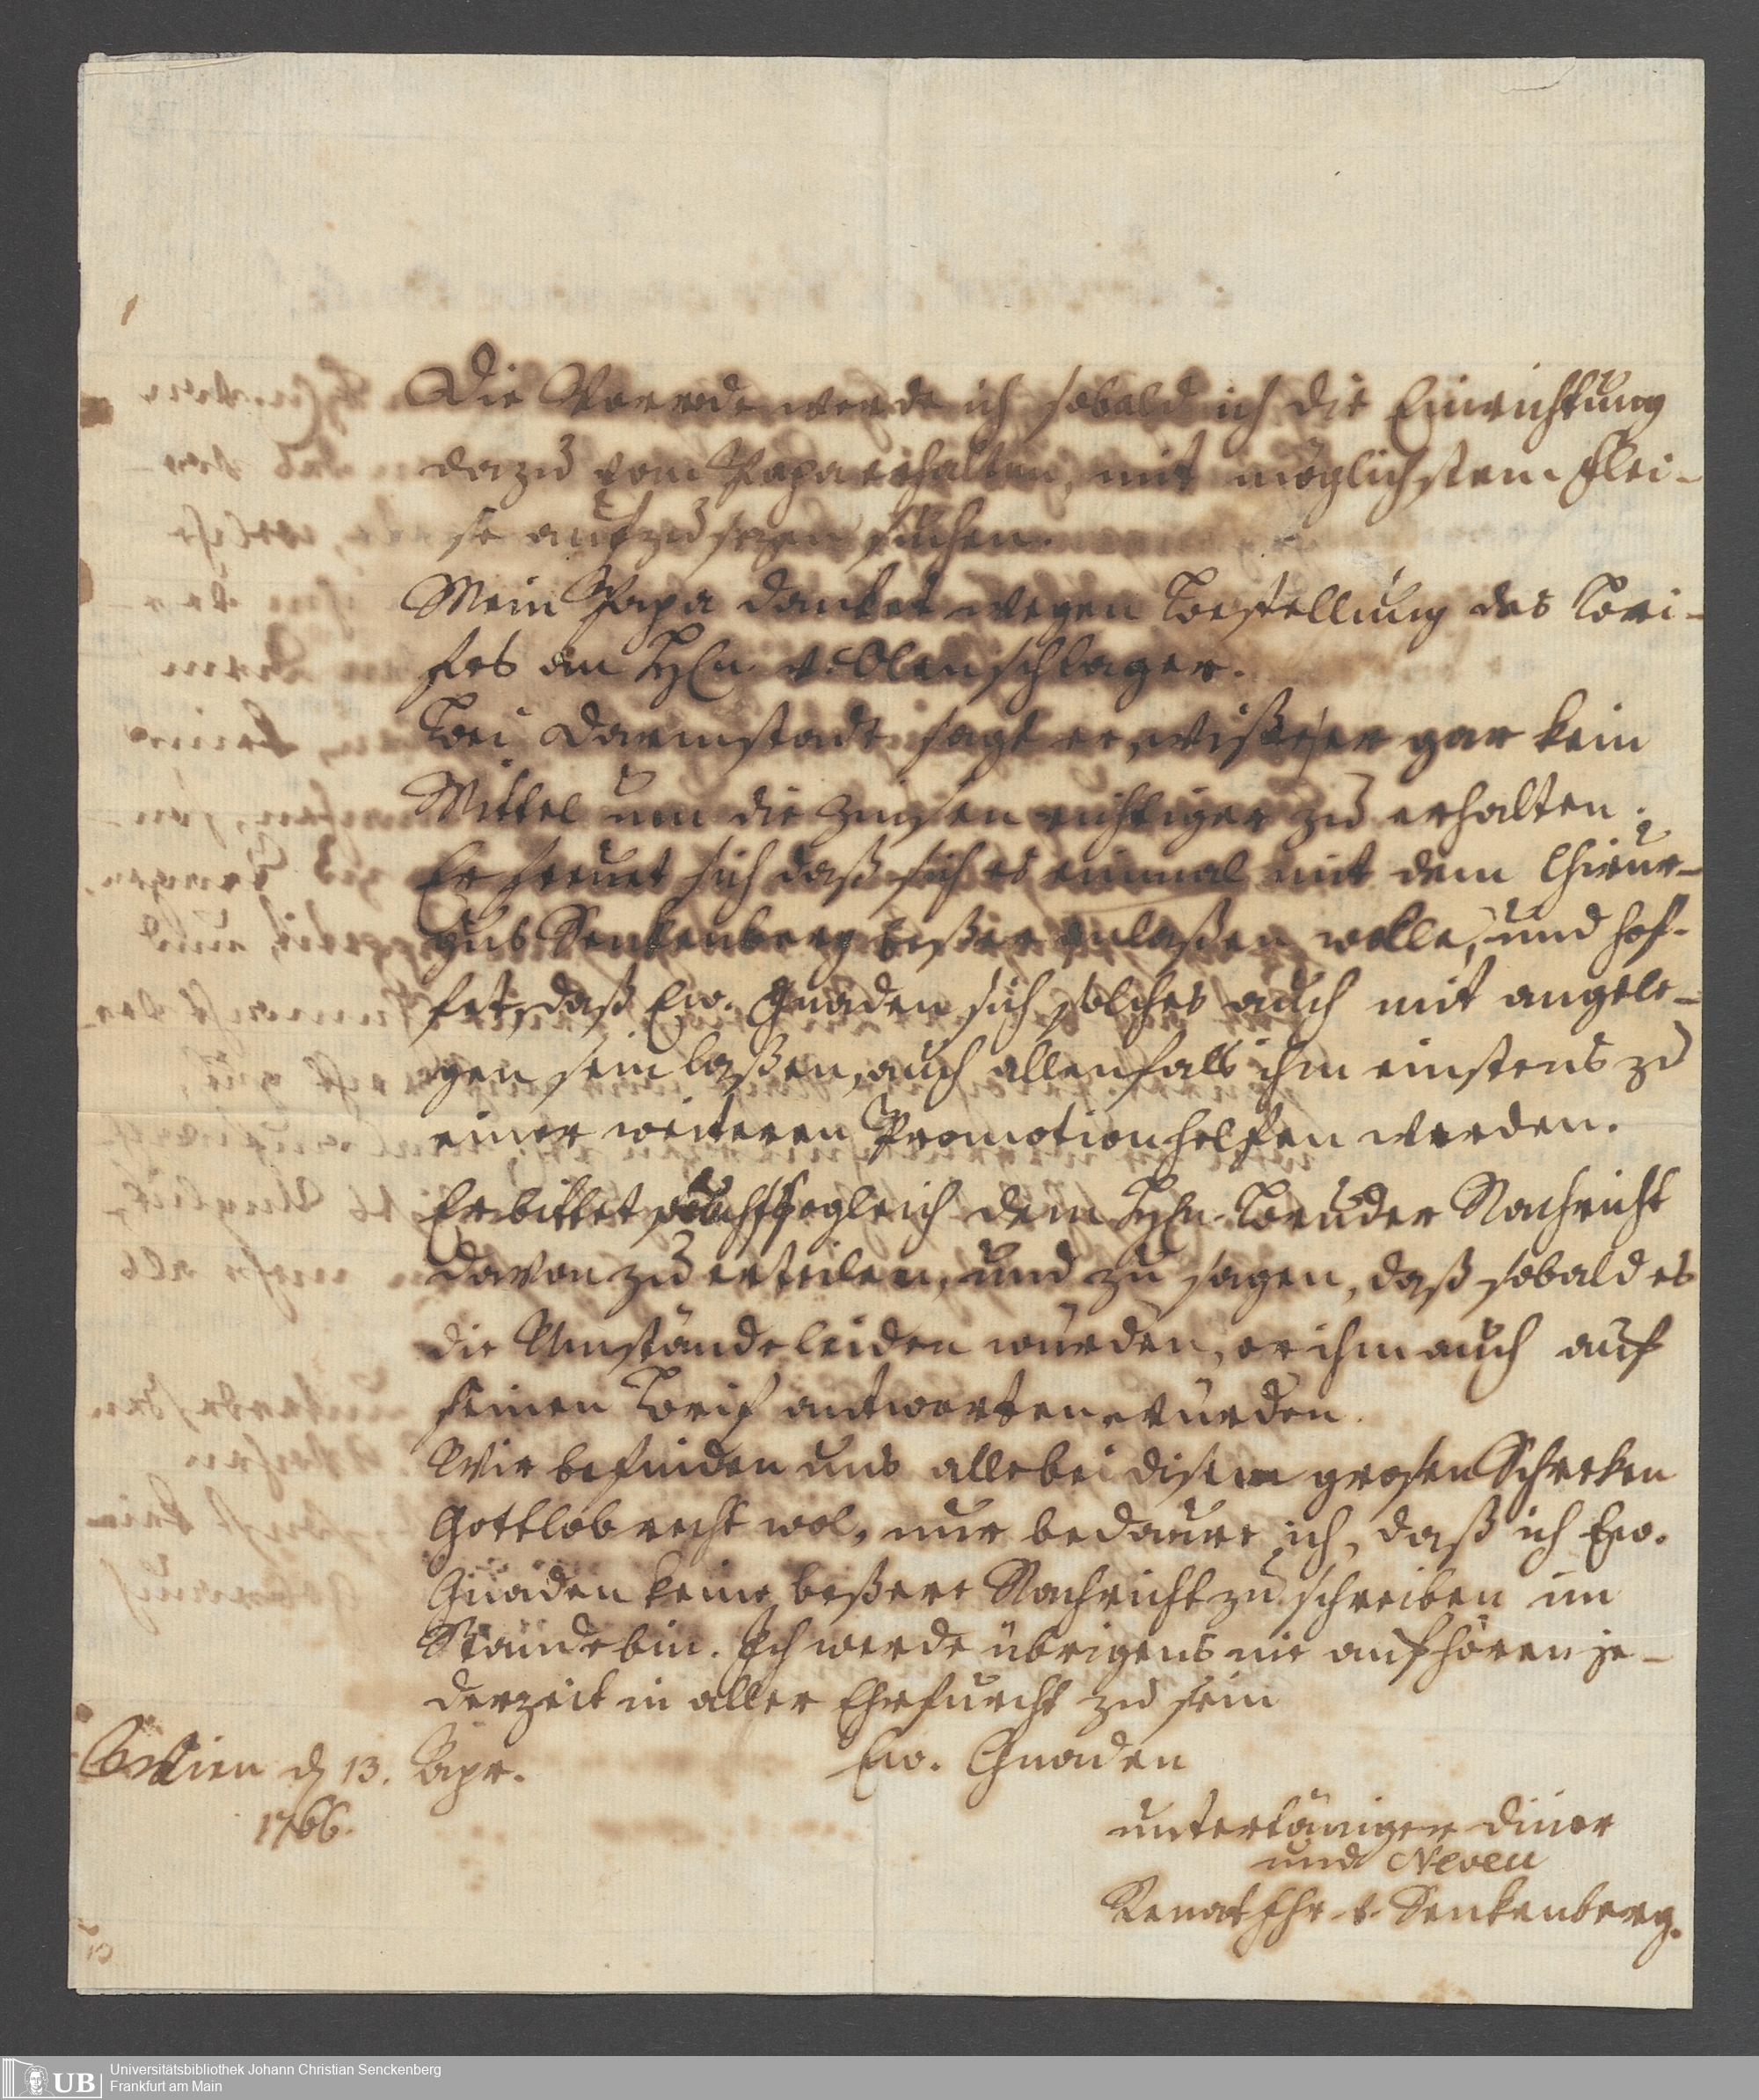 Die Vorrede werde ich sobald ich die Einrichtung
dazu vom Papa erhalten, mit möglichstem Flei-
se aufzusezen suchen.
Mein Papa danket wegen Bestellung des Bri-
fes an Hℓn. v. Olenschlager.
Bei Darmstadt sagt er, wiße er gar kein
Mittel um die Zinsen richtiger zu erhalten.
Er freuet sich daß sich es einmal mit dem Chirur-
gus Senkenberg beßer anlaßen wolle, und hof-
fet, daß Ew. Gnaden sich solches auch mit angele-
gen sein laßen, auch allenfalls ihm einstens zu
einer weiteren Promotion helfen werden.
Er bittet sogleich dem Hℓn. Bruder Nachricht
davon zu erteilen, und zu sagen, daß sobald es
die Umstände leiden würden, er ihm auch auf
seinen Brif antworten würden.
Wir befinden uns alle bei disem grosen Schreken
Gottlob recht wol, nur bedaure ich, daß ich Ew.
Gnaden keine beßere Nachricht zu schreiben im
Stande bin. Ich werde übrigens nie aufhören je-
derzeit in aller Ehrfurcht zu sein
Ew. Gnaden
Wien d 13. Apr.
1766.
untertäniger Diner
und Neveu
Renat. Fhr. v. Senkenberg.
UB Universitätsbibliothek Johann Christian Senckenberg
Frankfurt am Main